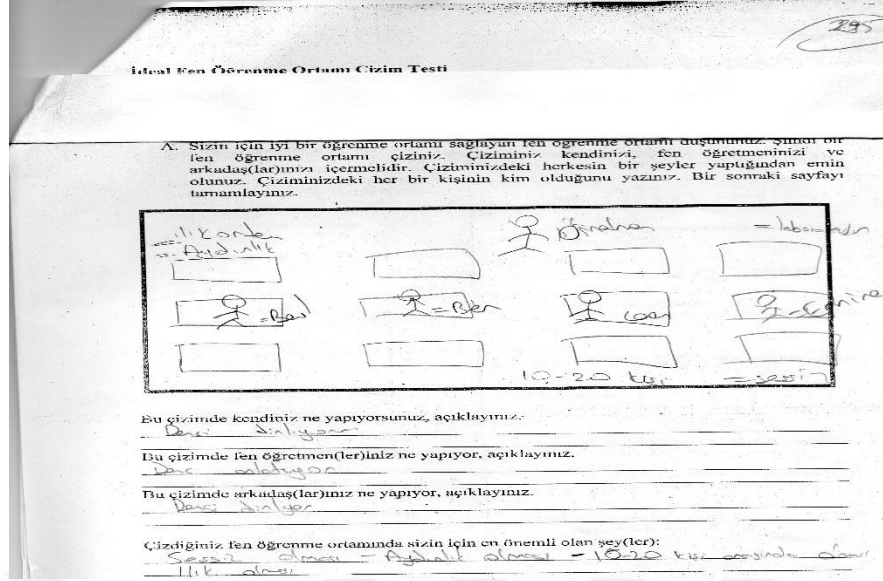 295
İdeal Fen Öğrenme Ortamı Çizim Testi
A. Sizin için iyi bir öğrenme ortamı sağlayan fen öğrenme ortamı düşününüz. Şimdi bir
fen öğrenme ortamı çiziniz. Çiziminiz kendinizi, fen öğretmeninizi ve
arkadaş(lar)ınızı içermelidir. Çiziminizdeki herkesin bir şeyler yaptığından emin
olunuz. Çiziminizdeki her bir kişinin kim olduğunu yazınız. Bir sonraki sayfayı
tamamlayınız.
Aydınlık
= Ben
10-20 kişi
Bu çizimde kendiniz ne yapıyorsunuz, açıklayınız.
Dersi dinliyorum
Bu çizimde fen öğretmen(ler)iniz ne yapıyor, açıklayınız.
Ders anlatıyor
Bu çizimde arkadaş(lar)ınız ne yapıyor, açıklayınız.
Dersi dinliyor
Çizdiğiniz fen öğrenme ortamında sizin için en önemli olan şey(ler):
Sessiz olması - Aydınlık olması - 10-20 kişi arasında
Ilık olması